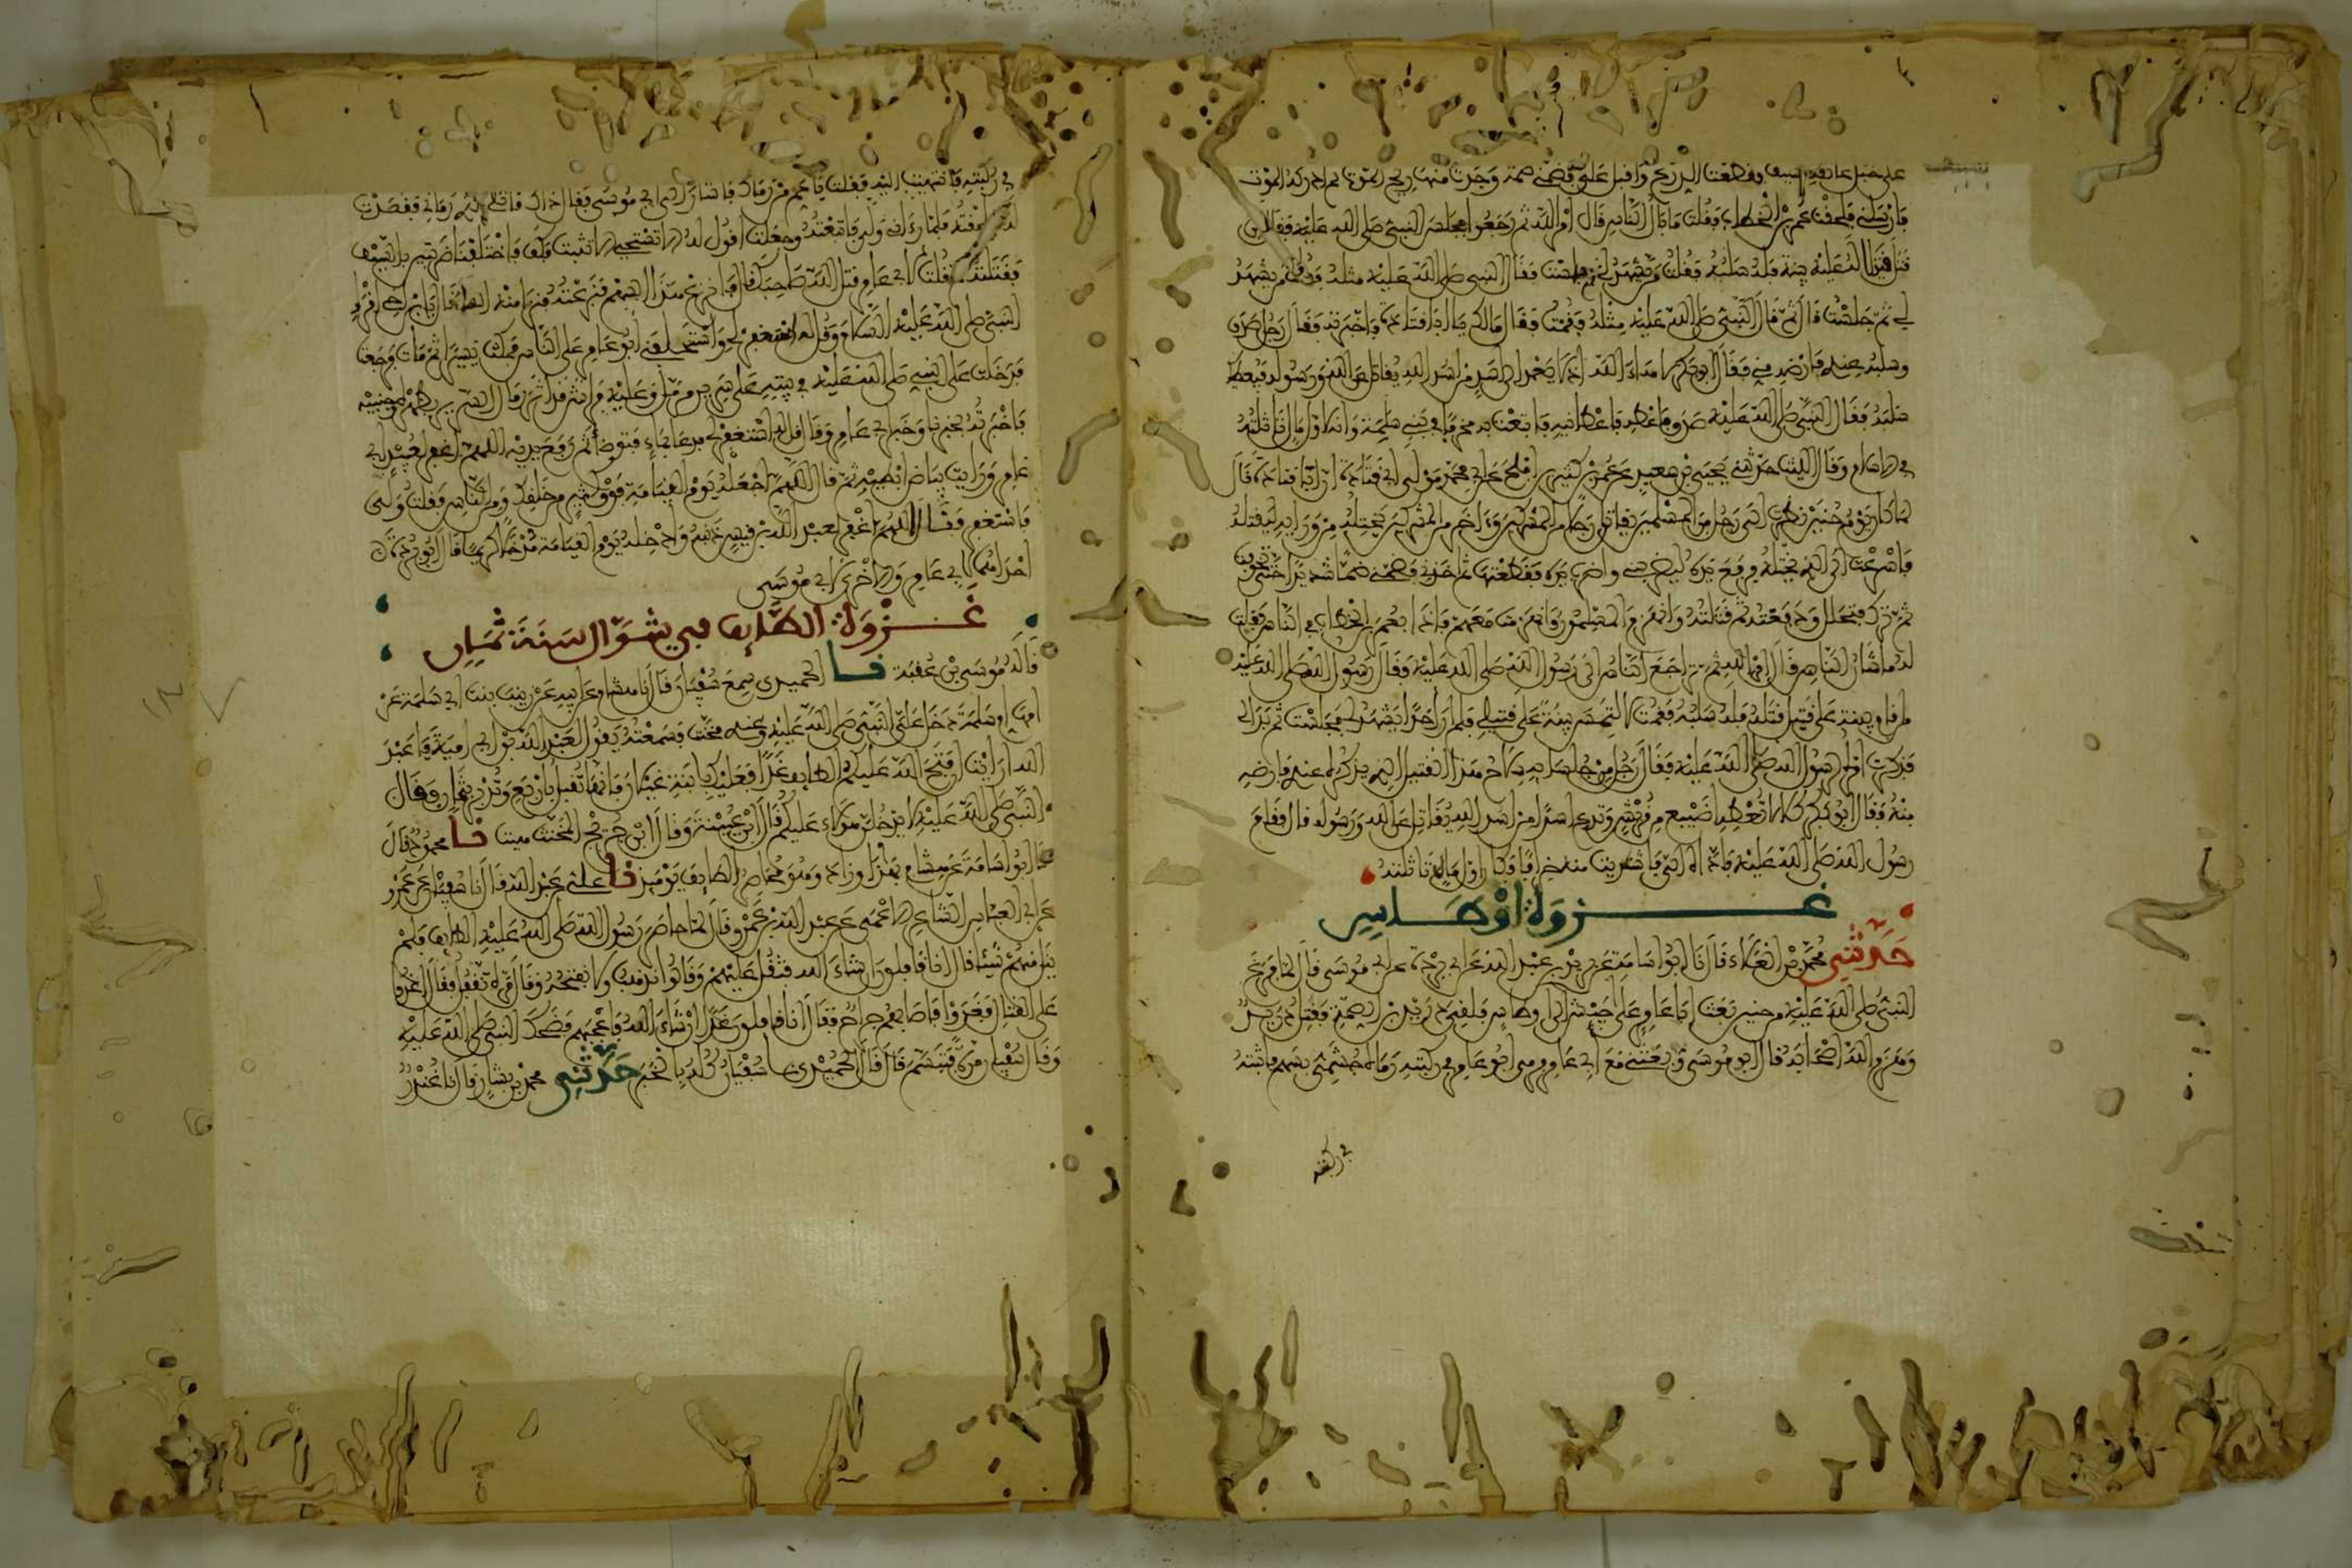 على حبل عاتقه بسيف فقطعت الدرع وأقبل علي فضمني ضمة وجدت منها ريح الموت ثم أدركه الموت
فأرسلني فلحقت عمر بن الخطاب فقلت ما بال الناس قال أمر الله ثم رجعوا وجلس النبي صلى الله عليه فقال من
قتل قتيلا له عليه بينة فله سلبه فقلت من يشهد لي ثم جلست فقال النبي صلى الله عليه مثله فقلت من يشهد
لي ثم جلست قال ثم قال النبي صلى الله عليه مثله فقمت فقال مالك يا أبا قتادة فأخبرته فقال رجل صدق
وسلبه عندي فأرضه مني فقال أبو بكر لاها الله إذا لا يعمد إلى أسد من أسد الله يقاتل عن الله ورسوله فيعطيك
سلبه فقال النبي صلى الله عليه صدق فأعطه فأعطانيه فابتعت به مخرفا في بني سلمة وإنه لأول مال تأثلته
في الإسلام وقال الليث حدثني يحيى بن سعيد عن عمر بن كثير بن أفلح عن أبي محمد مولى أبي قتادة أن أبا قتادة قال
لما كان يوم حنين نظرت إلى رجل من المسلمين يقاتل رجلا من المشركين وآخر من المشركين يختله من ورائه ليقتله
فأسرعت إلى الذي يختله فرفع يده ليضربني وأضرب يده فقطعتها ثم أخذني فضمني ضما شديدا حتى تخوفت
ثم ترك فتحلل ودفعته ثم قتلته وانهزم المسلمون وانهزمت معهم فإذا بعمر بن الخطاب في الناس فقلت
له ما شأن الناس قال أمر الله ثم تراجع الناس إلى رسول الله صلى الله عليه فقال رسول الله صلى الله عليه
من أقام بينة على قتيل قتله فله سلبه فقمت لألتمس بينة على قتيلي فلم أر أحدا يشهد لي فجلست ثم بدا لي
فذكرت أمره لرسول الله صلى الله عليه فقال رجل من جلسائه سلاح هذا القتيل الذي يذكر عندي فأرضه
منه فقال أبو بكر كلا لا تعطه أضيبع من قريش وتدع أسدا من أسد الله يقاتل عن الله ورسوله قال فقام
رسول الله صلى الله عليه فأداه إلي فاشتريت منه خرافا فكان أول مال تأثلته
غزوة أوطاس
حدثني محمد بن العلاء قال نا أبو أسامة عن بريد بن عبد الله عن أبي بردة عن أبي موسى قال لما فرغ
النبي صلى الله عليه من حنين بعث أبا عامر على جيش إلى أوطاس فلقي دريد بن الصمة فقتل دريد
وهزم الله أصحابه قال أبو موسى وبعثني مع أبي عامر فرمي أبو عامر في ركبته رماه جشمي بسهم فأثبته
في ركبته
في ركبته فانتهيت إليه فقلت يا عم من رماك فأشار إلى أبي موسى فقال ذاك قاتلي الذي رماني فقصدت
له فلحقته فلما رآني ولى فاتبعته وجعلت أقول له ألا تستحيي ألا تثبت فكف فاختلفنا ضربتين بالسيف
فقتلته ثم قلت لأبي عامر قتل الله صاحبك قال فانزع هذا السهم فنزعته فنزا منه الماء قال يا ابن أخي أقرئ
النبي صلى الله عليه السلام وقل له استغفر لي واستخلفني أبو عامر على الناس فمكث يسيرا ثم مات فرجعت
فدخلت على النبي صلى الله عليه في بيته على سرير مرمل وعليه فراش قد أثر رمال السرير بظهره وجنبيه
فأخبرته بخبرنا وخبر أبي عامر وقال قل له استغفر لي فدعا بماء فتوضأ ثم رفع يديه اللهم اغفر لعبيد أبي
عامر ورأيت بياض إبطيه ثم قال اللهم اجعله يوم القيامة فوق كثير من خلقك ومن الناس فقلت ولي
فاستغفر فقال اللهم اغفر لعبد الله بن قيس ذنبه وأدخله يوم القيامة مدخلا كريما قال أبو بردة
إحداهما لأبي عامر والأخرى لأبي موسى
غزوة الطائف في شوال سنة ثمان
قاله موسى بن عقبة نا الحميدي سمع سفيان قال نا هشام عن أبيه عن زينب بنت أبي سلمة عن
أمها أم سلمة دخل علي النبي صلى الله عليه وعندي مخنث فسمعته يقول لعبد الله بن أبي أمية يا عبد
الله أرأيت إن فتح الله عليكم الطائف غدا فعليك بابنة غيلان فإنها تقبل بأربع وتدبر بثمان وقال
النبي صلى الله عليه لا يدخلن هؤلاء عليكم قال ابن عيينة وقال ابن جريج المخنث هيت نا محمود قال
نا أبو أسامة عن هشام بهذا وزاد وهو محاصر الطائف يومئذ نا علي بن عبد الله قال نا سفيان عن عمرو
عن أبي العباس الشاعر الأعمى عن عبد الله بن عمرو قال لما حاصر رسول الله صلى الله عليه الطائف فلم
ينل منهم شيئا قال إنا قافلون إن شاء الله فثقل عليهم وقالوا نذهب ولا نفتحه وقال مرة نقفل فقال اغدوا
على القتال فغدوا فأصابهم جراح فقال إنا قافلون غدا إن شاء الله فأعجبهم فضحك النبي صلى الله عليه
وقال سفيان مرة فتبسم قال قال الحميدي نا سفيان كله بالخبر حدثني محمد بن بشار قال نا غندر